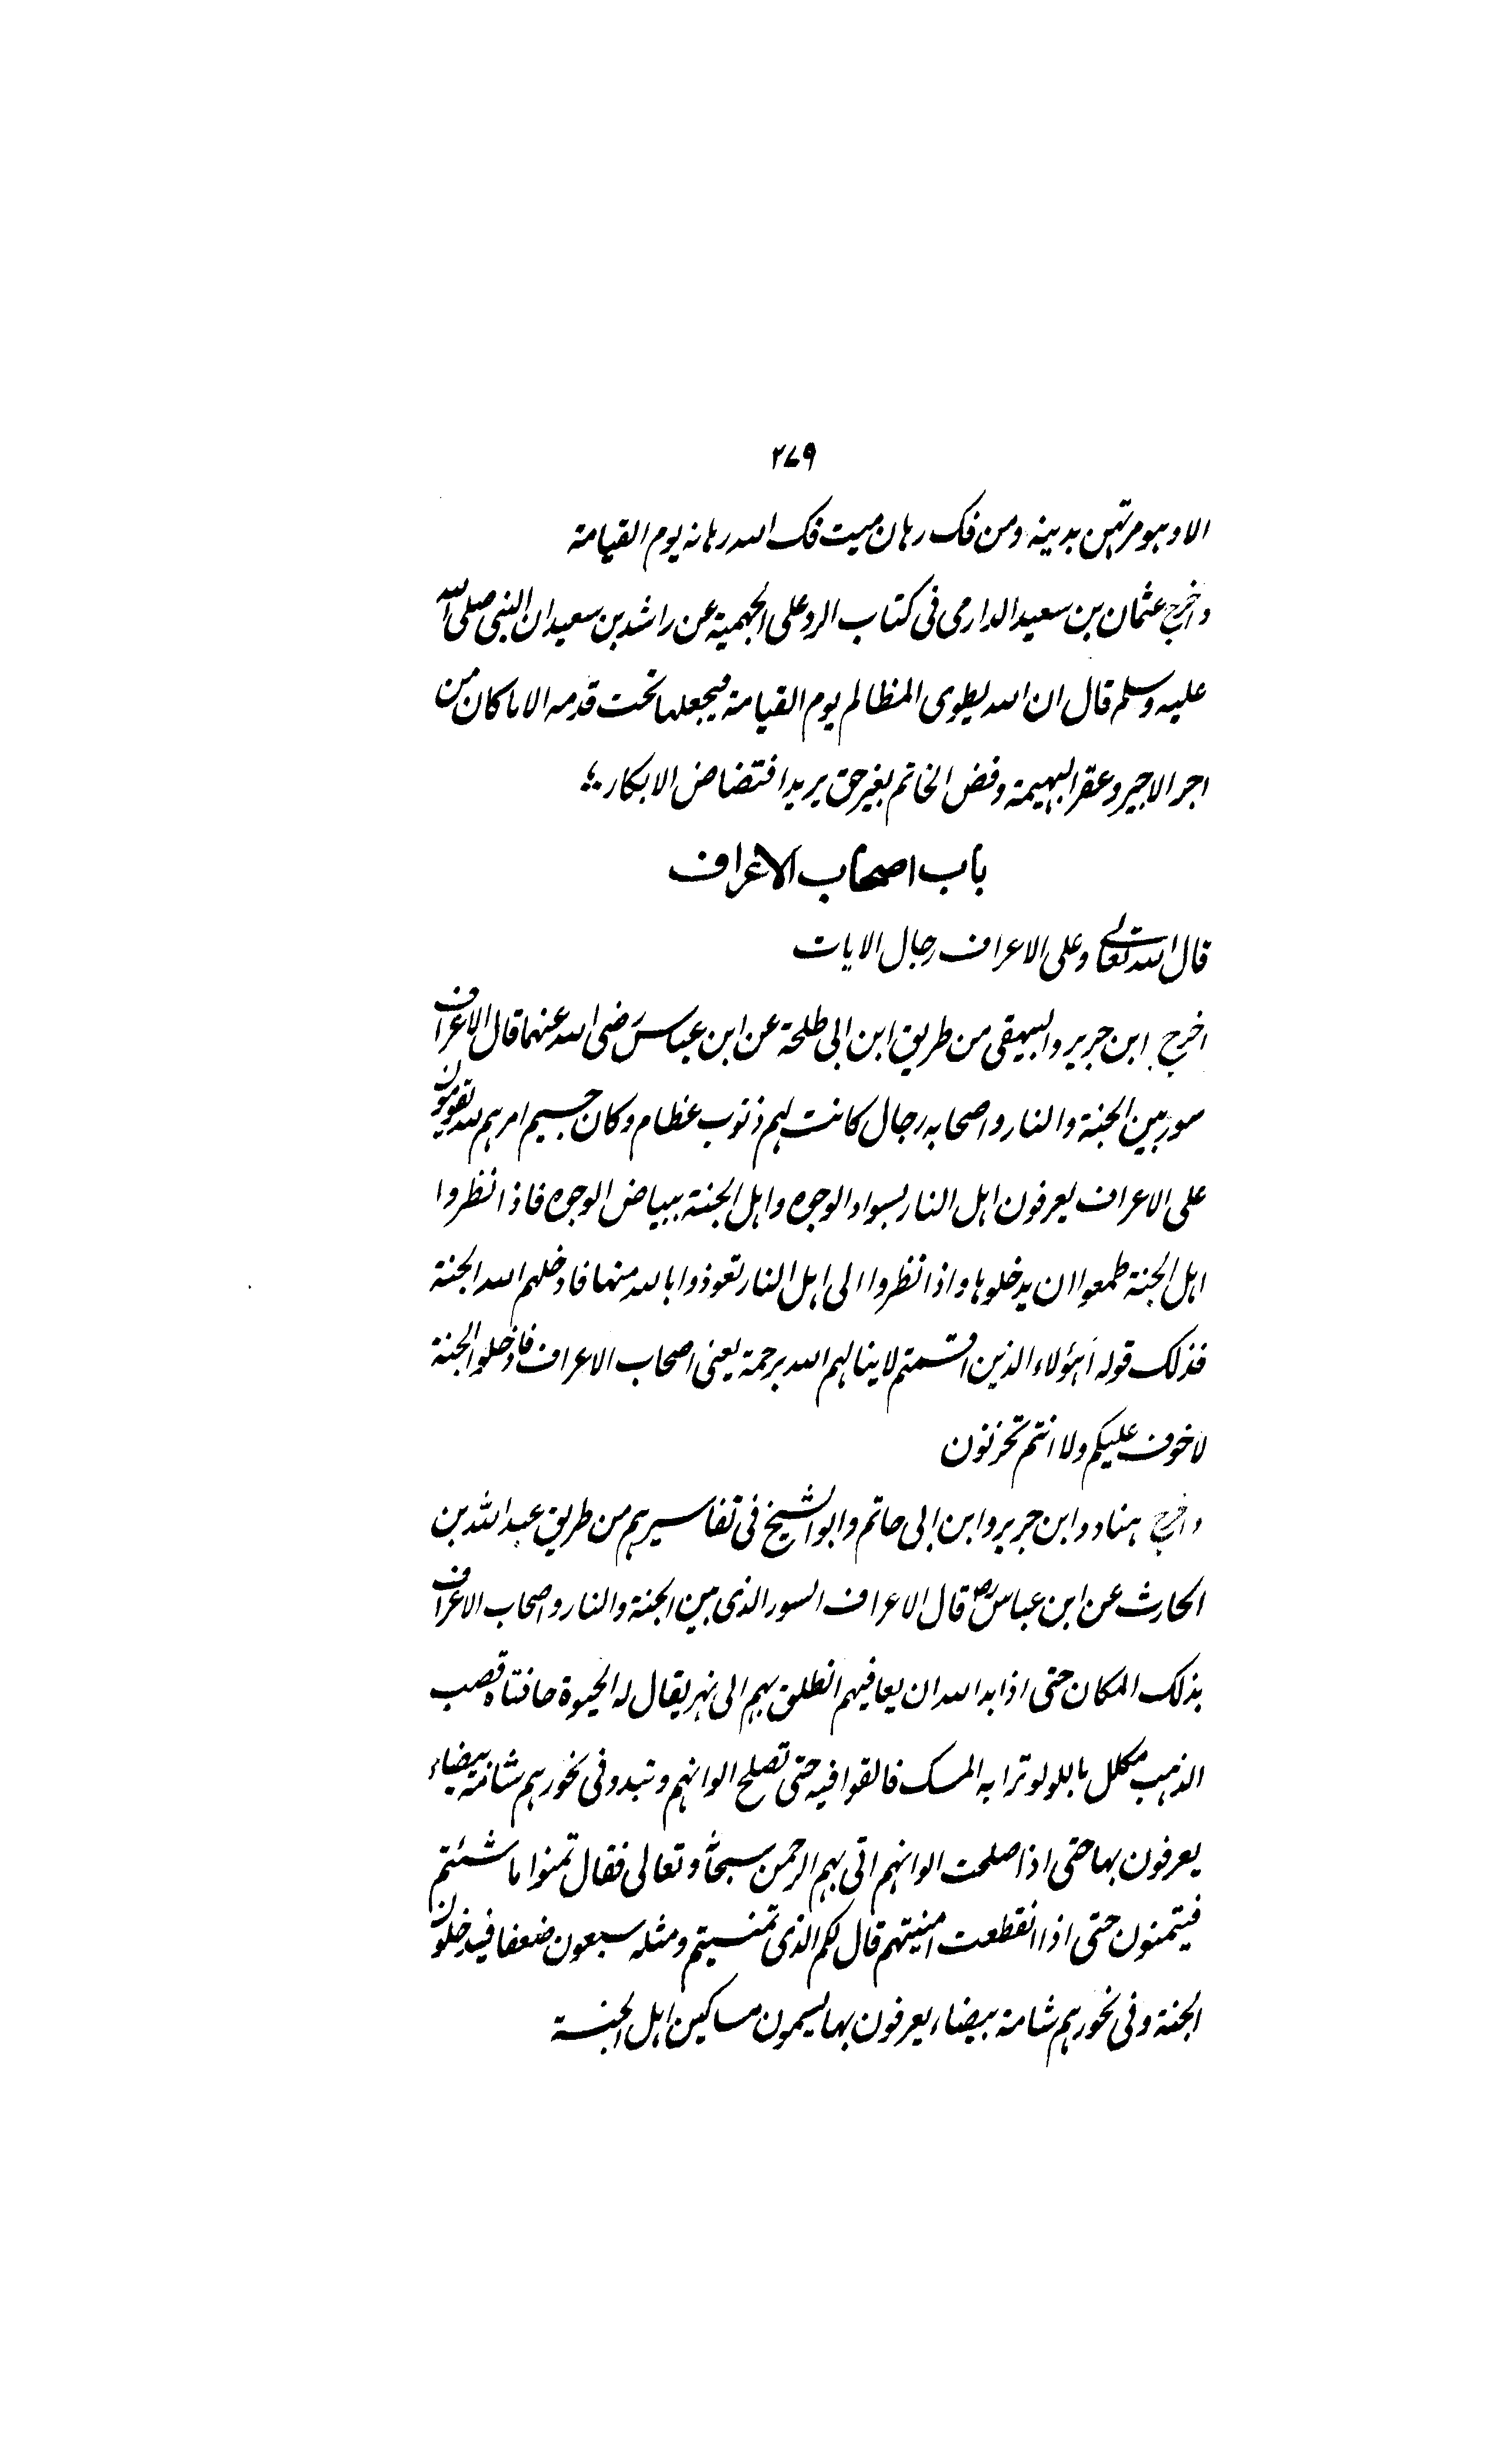 ۲۷۹
الا وهو مرتهن بدينه ومن فك رهان ميت فك الله رهانه يوم القيامة
واخرج عثمان بن سعيد الدارمى فى كتاب الرد على الجهمية عن راشد بن سعيد ان النبى صلى الله
عليه وسلم قال ان الله يطوى المظالم يوم القيامة فيجعلها تحت قدمه الا ما كان من
اجر الاجير وعقر البهيمة وفض الخاتم بغير حق يريد افتضاض الابكار
باب اصحاب الاعراف
قال الله تعالى وعلى الاعراف رجال الايات
اخرج ابن جرير والبيهقى من طريق ابن ابى طلحة عن ابن عباس رضى الله عنهما قال الاعراف
سور بين الجنة والنار واصحابه رجال كانت لهم ذنوب عظام وكان جسيم امرهم لله يقومون
على الاعراف يعرفون اهل النار بسواد الوجوه واهل الجنة ببياض الوجوه فاذا نظروا
اهل الجنة طمعوا ان يدخلوها واذا نظروا الى اهل النار تعوذوا بالله منها فادخلهم الله الجنة
فذلك قوله أهؤلاء الذين اقسمتم لا ينالهم الله برحمة يعنى اصحاب الاعراف فادخلوا الجنة
لا خوف عليكم ولا انتم تحزنون
واخرج هناد وابن جرير وابن ابى حاتم وابو الشيخ فى تفاسيرهم من طريق عبد الله بن
الحارث عن ابن عباس رض قال الاعراف السور الذى بين الجنة والنار واصحاب الاعراف
بذلك المكان حتى اذا بد الله ان يعافيهم انطلق بهم الى نهر يقال له الحيوة حافتاه قصب
الذهب مكلل باللولو ترابه المسك فالقوا فيه حتى تصلح الوانهم وتبدو فى نحورهم شامة بيضاء
يعرفون بها حتى اذا صلحت الوانهم اتى بهم الرحمن سبحانه وتعالى فقال تمنوا ما شئتم
فيتمنون حتى اذا انقطعت امنيتهم قال لكم الذى تمنيتم ومثله سبعون ضعفا فيدخلون
الجنة وفى نحورهم شامة بيضاء يعرفون بها يسمون مساكين اهل الجنة